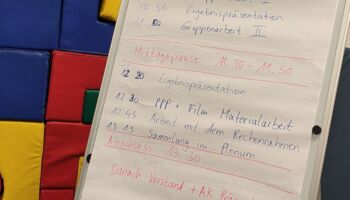 10 50 Ergebnispräsentation
11 Gruppenarbeit II
Mittagspause 11.30 - 11.50
Ergebnispräsentation
12 30 PPP + Film Materialarbeit
12 45 Arbeit mit dem Rechenrahmen
13 15 Sammlung im Plenum
Abschluss 13 30
Danach Vorstand + AK